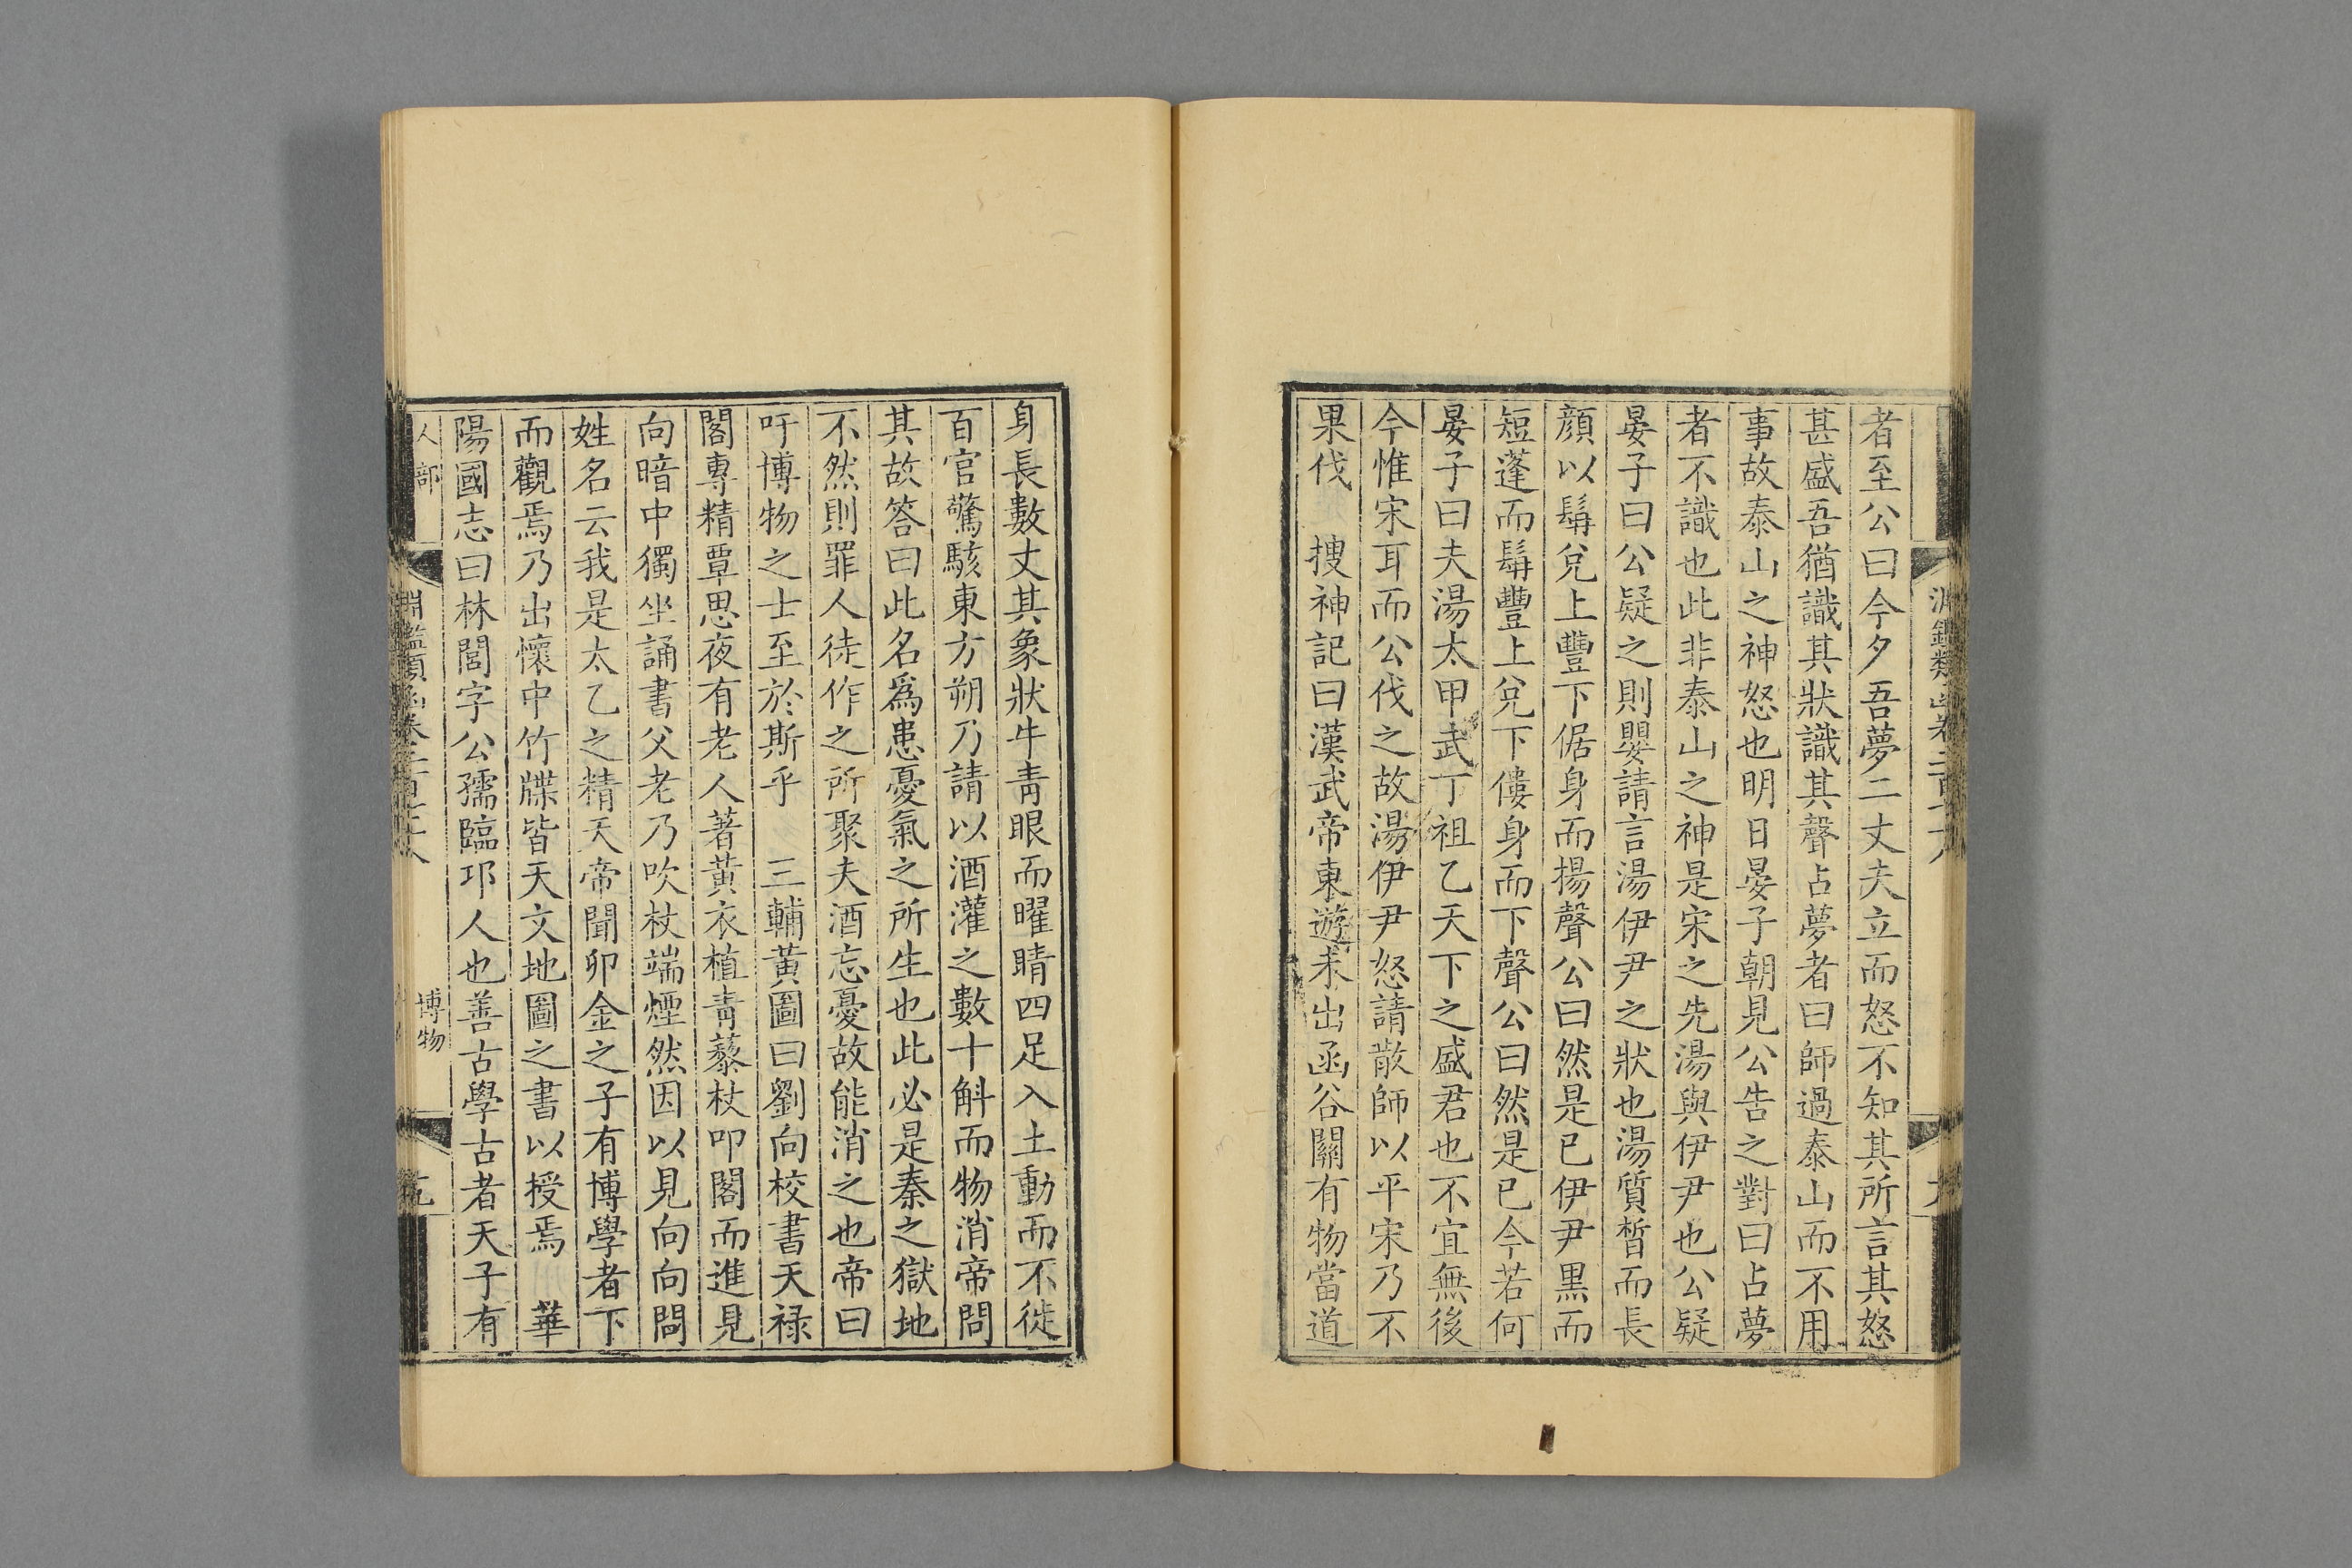 者至公曰今夕吾夢二丈夫立而怒不知其所言其怒
甚盛吾猶識其狀識其聲占夢者曰師過泰山而不用
事故泰山之神怒也明日晏子朝見公告之對曰占夢
者不識也此非泰山之神是宋之先湯與伊尹也公疑
晏子曰公疑之則嬰請言湯伊尹之狀也湯質晳而長
顔以髯兌上豐下倨身而揚聲公曰然是已伊尹黒而
短蓬而髯豐上兌下僂身而下聲公曰然是已今若何
晏子曰夫湯太甲武丁祖乙天下之盛君也不宜無後
今惟宋耳而公伐之故湯伊尹怒請散師以平宋乃不
果伐　搜神記曰漢武帝東遊未出函谷關有物當道
身長數丈其象狀牛青眼而曜睛四足入土動而不徙
百官驚駭東方朔乃請以酒灌之數十斛而物消帝問
其故答曰此名爲患憂氣之所生也此必是秦之獄地
不然則罪人徒作之所聚夫酒忘憂故能消之也帝曰
吁博物之士至於斯乎　三輔黃圖曰劉向校書天禄
閣專精覃思夜有老人著黃衣植青藜杖叩閣而進見
向暗中獨坐誦書父老乃吹杖端煙然因以見向向問
姓名云我是太乙之精天帝聞卯金之子有博學者下
而觀焉乃出懷中竹牒皆天文地圖之書以授焉　華
陽國志曰林閭字公孺臨邛人也善古學古者天子有
人部
博物